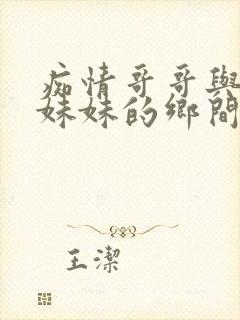 痴情哥哥與
妹妹的鄉間
王潔